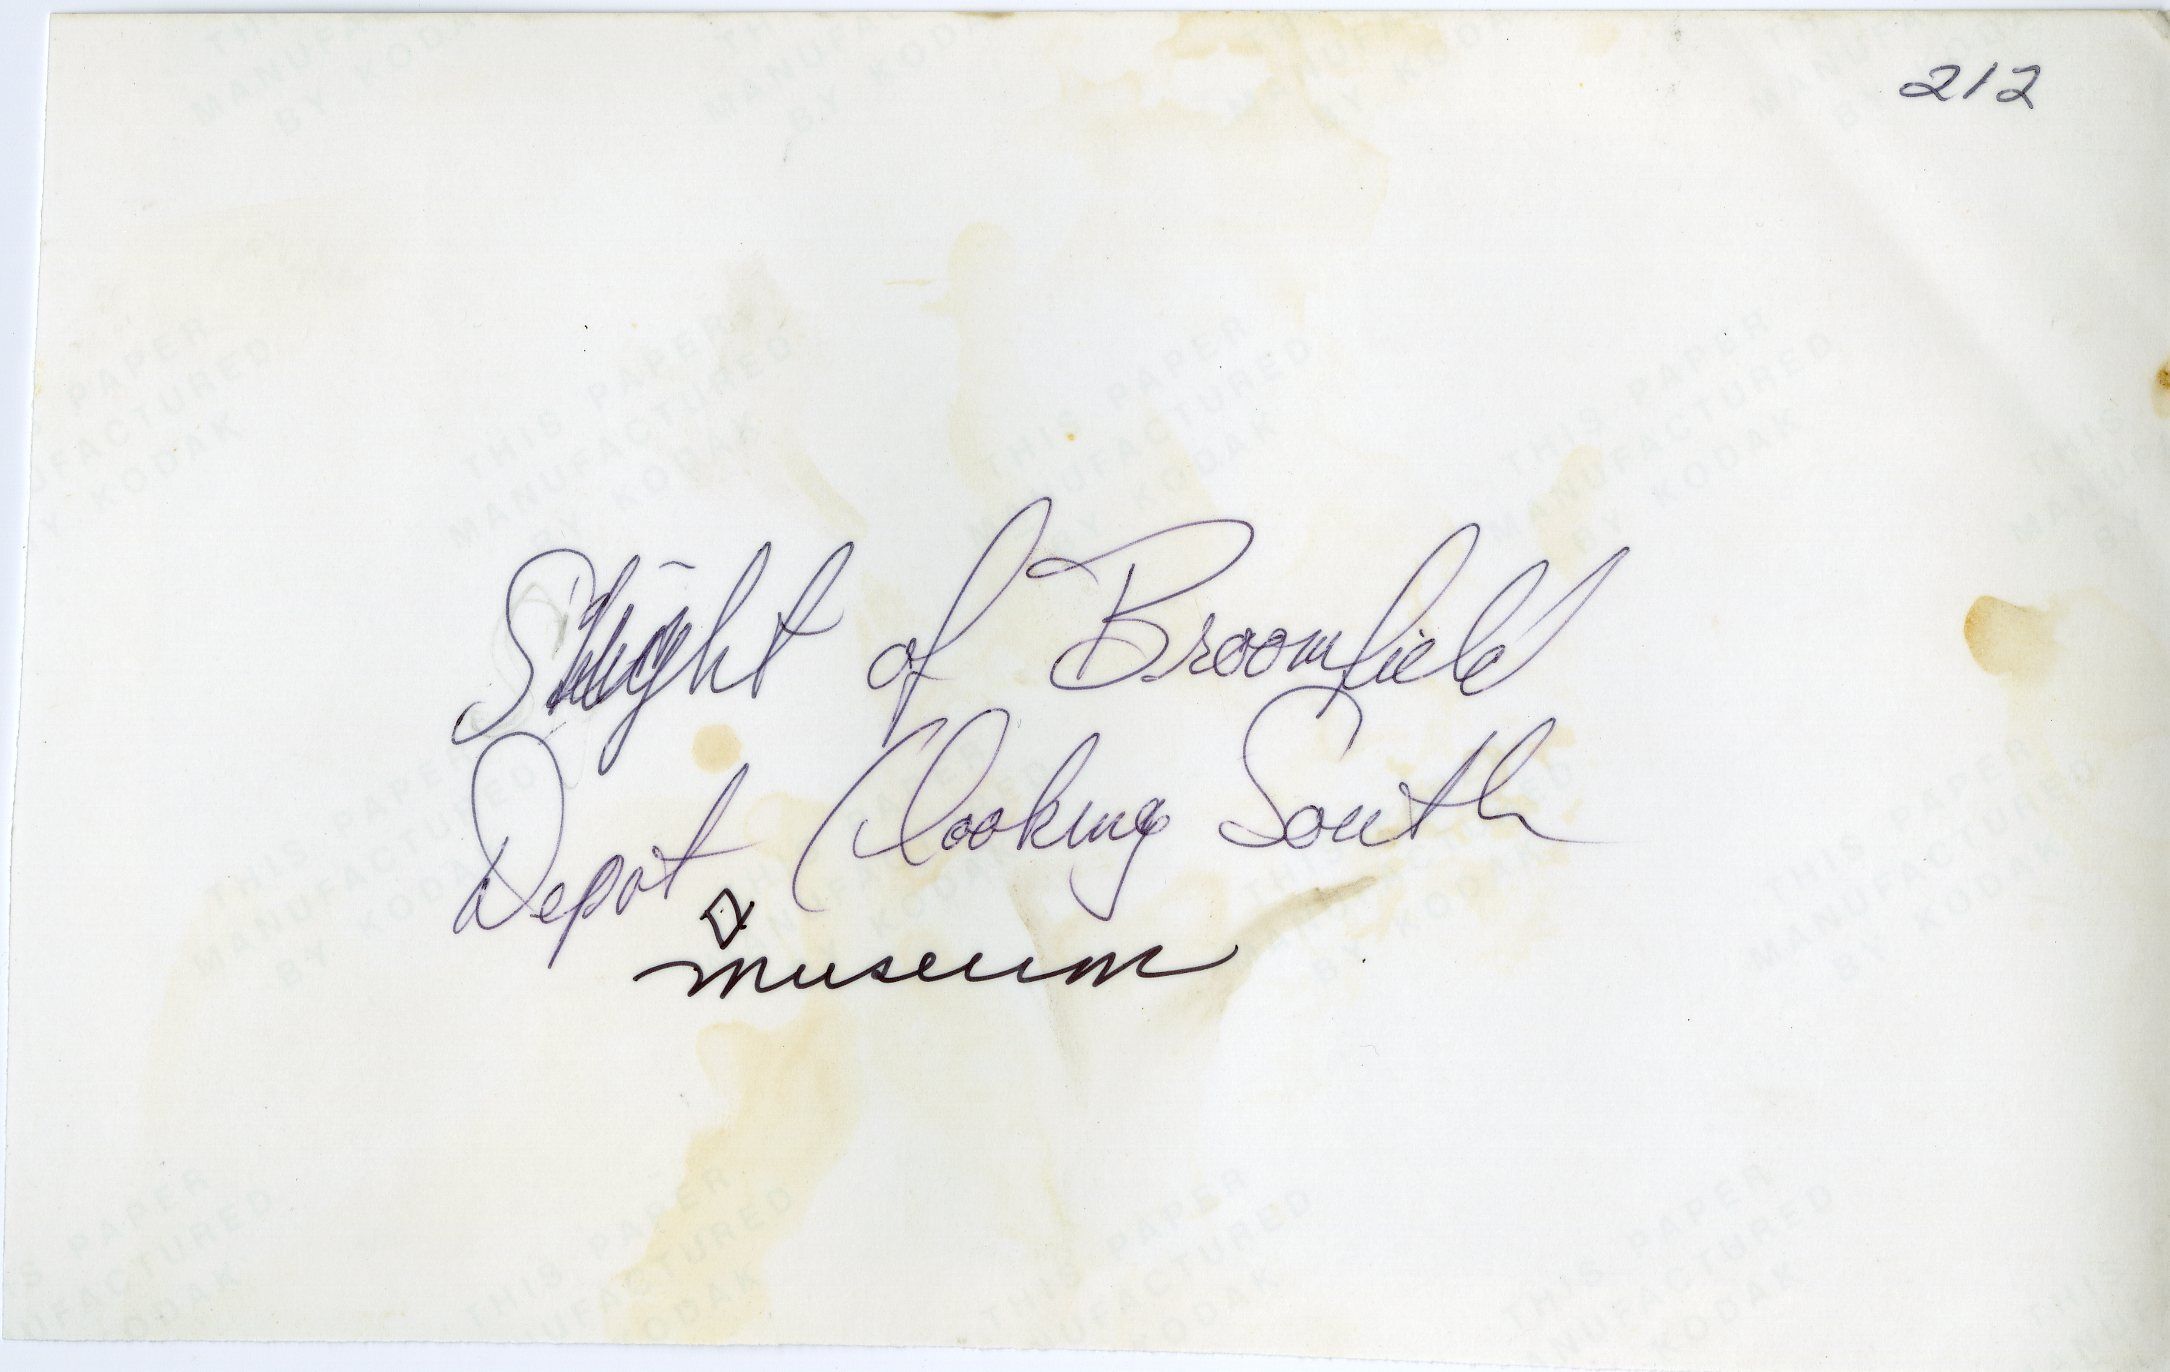 212
THIS PAPER
MANUFACTURED
BY KODAK
of Broomfield
Depot (looking South
museum